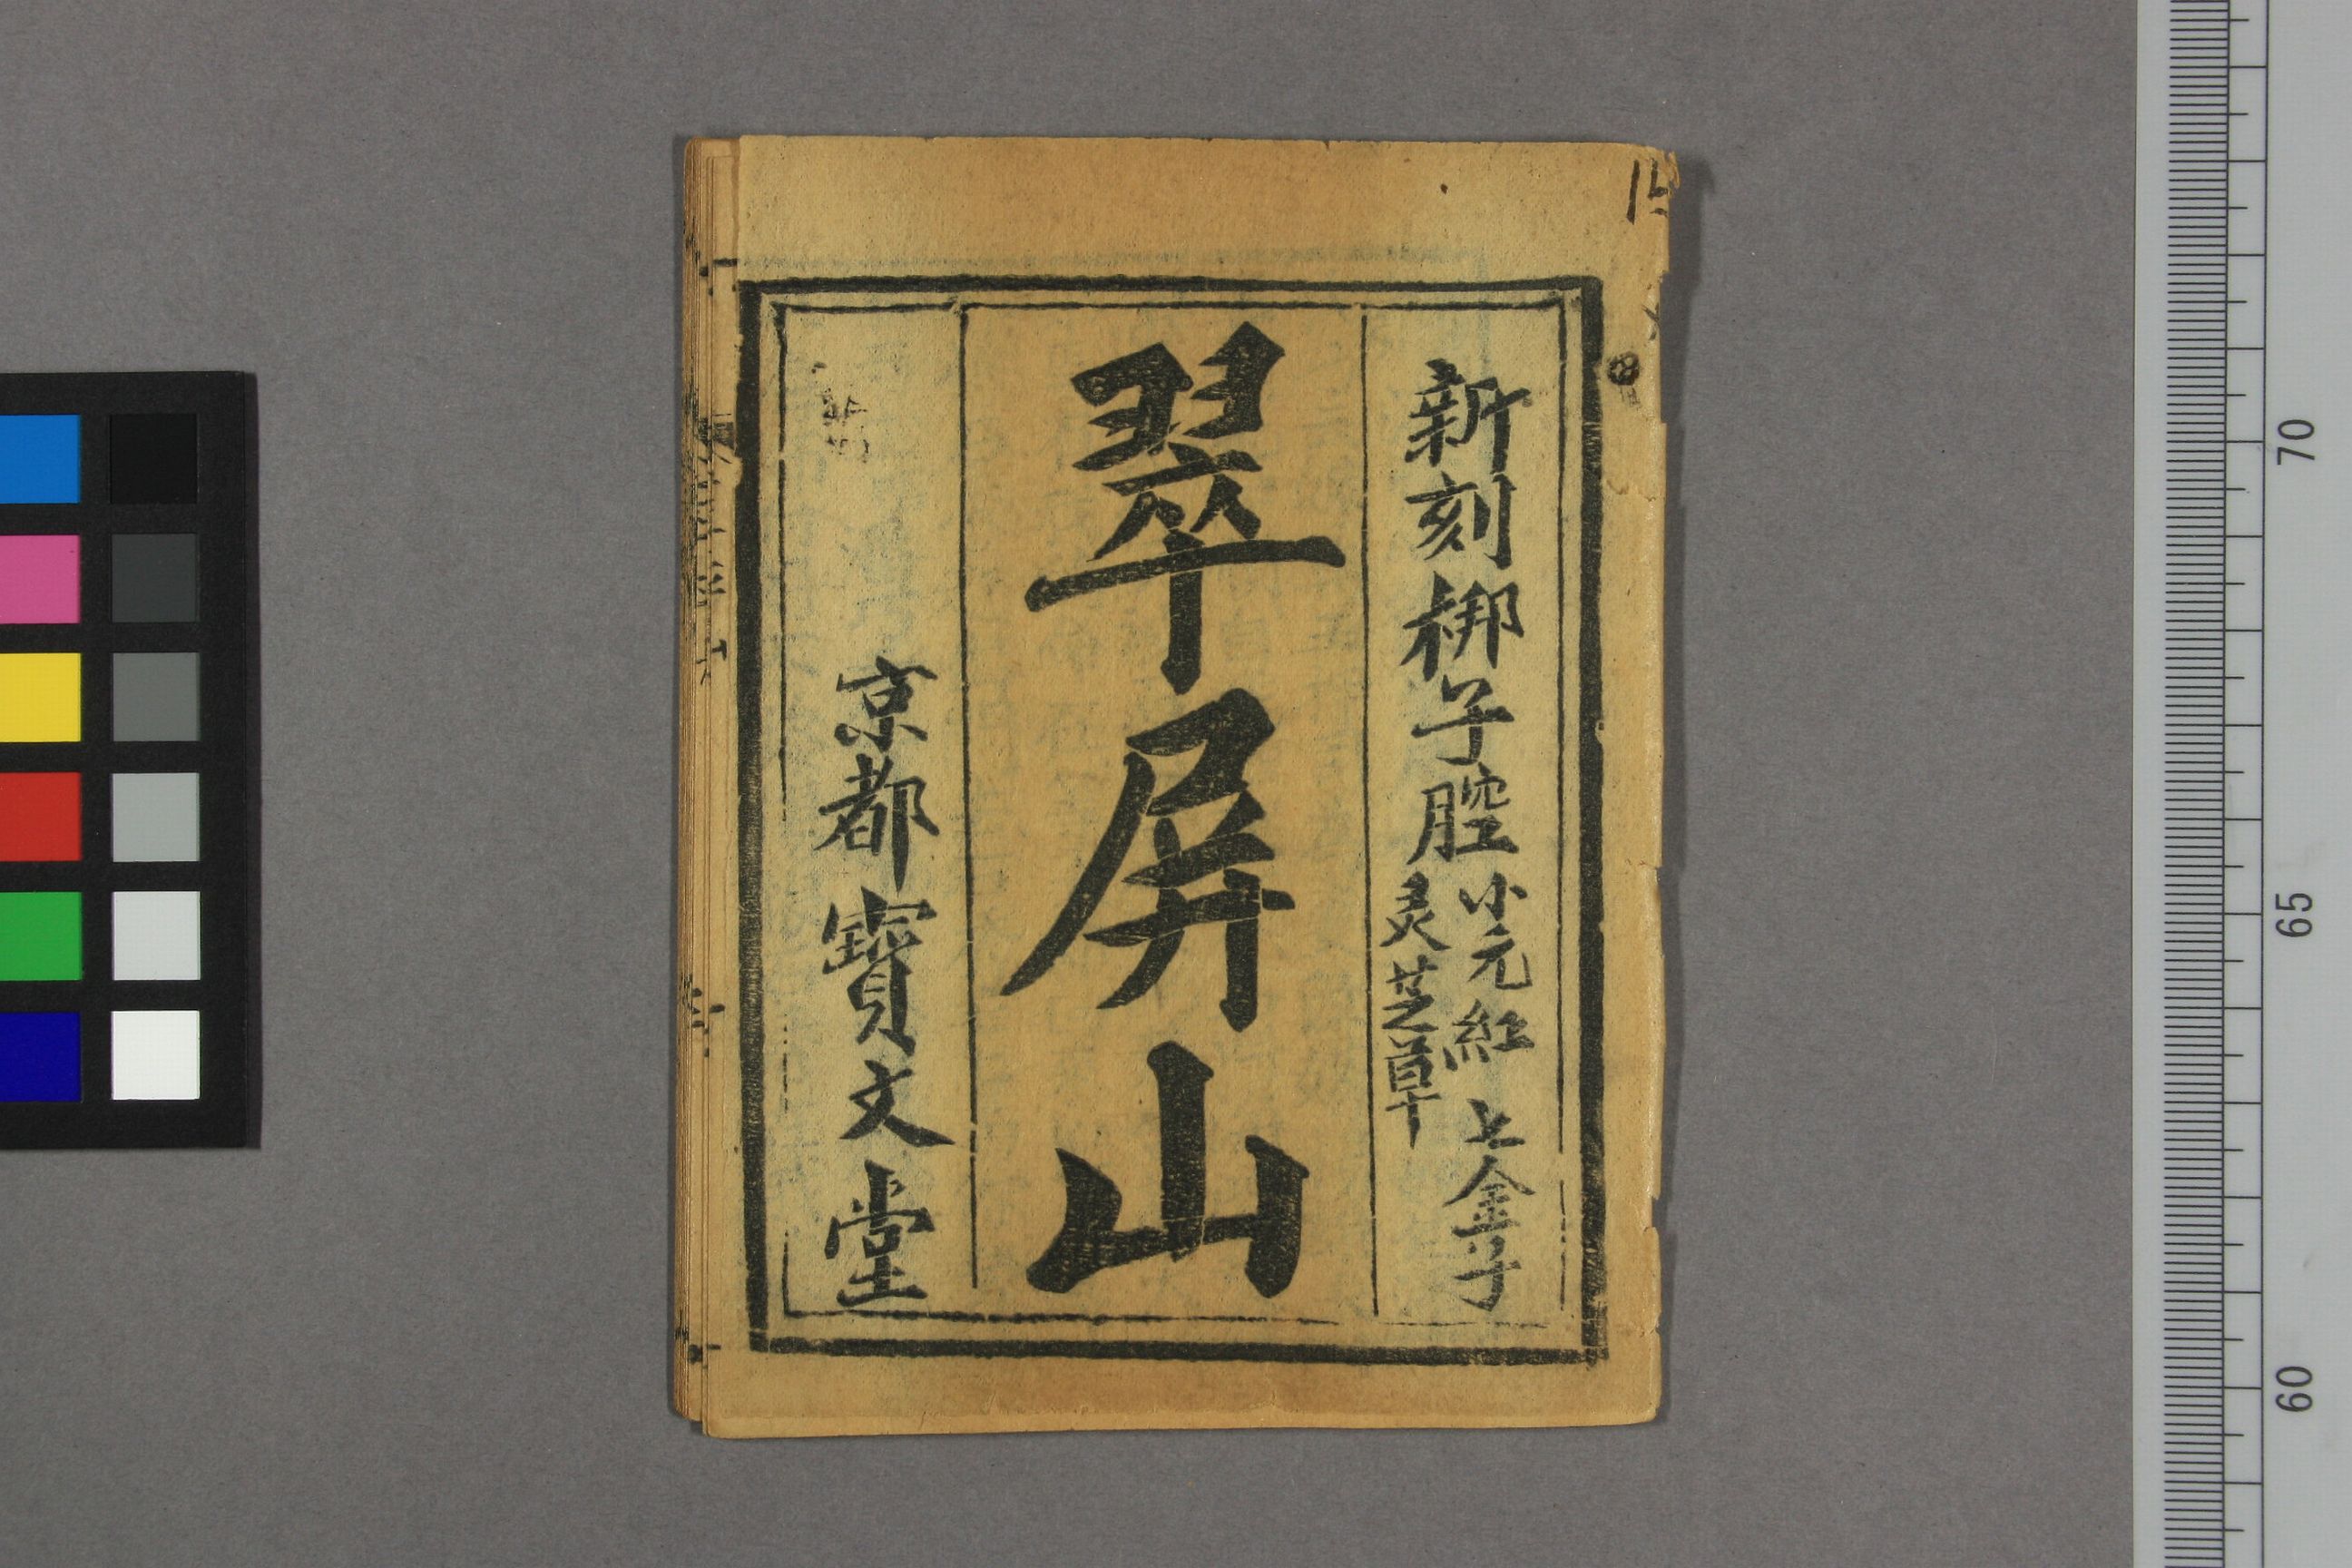 新刻梆子腔
小元紅 七金子
灵芝草
翠屏山
京都寳文堂
15
70
65
60